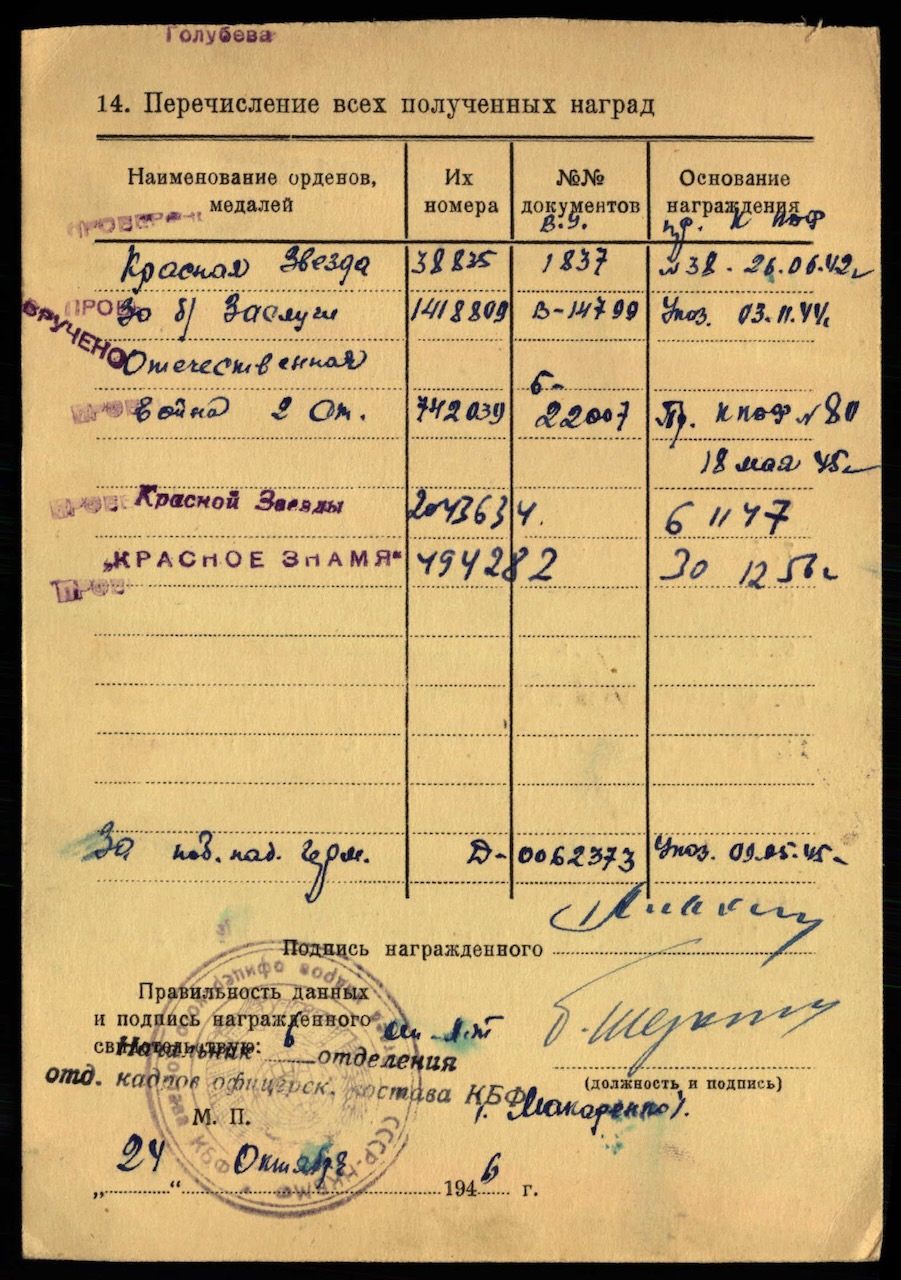 Голубева
14. Перечисление всех полученных наград
Наименование орденов, медалей Их номера №№ документов Основание награждения
ПРОВЕРЕН В.У. пр. КПОФ
Красная Звезда 38835 1837 №38 - 26.06.42г
ПРОВ За б/ Заслуги 1418809 В-14799 Указ. 03.11.44г.
ВРУЧЕНО
Отечественная
ПРОВЕ Война 2 ст. 742039 Б-22007 Пр. КПОФ №80
18 мая 45г
ПРОВЕ Красной Звезды 2043634. 6 11 47
„КРАСНОЕ ЗНАМЯ“ 494282 30 12 56г
ПРОВЕ
За поб. над. Герм. Д-0062373 Указ. 09.05.45-
Подпись награжденного
Правильность данных
и подпись награжденного
свидетельствую:
Начальник 6 отделения
отд. кадров офицерск. состава КБФ
(должность и подпись)
М. П. /Макаренко/.
„24“ Октября 1946 г.